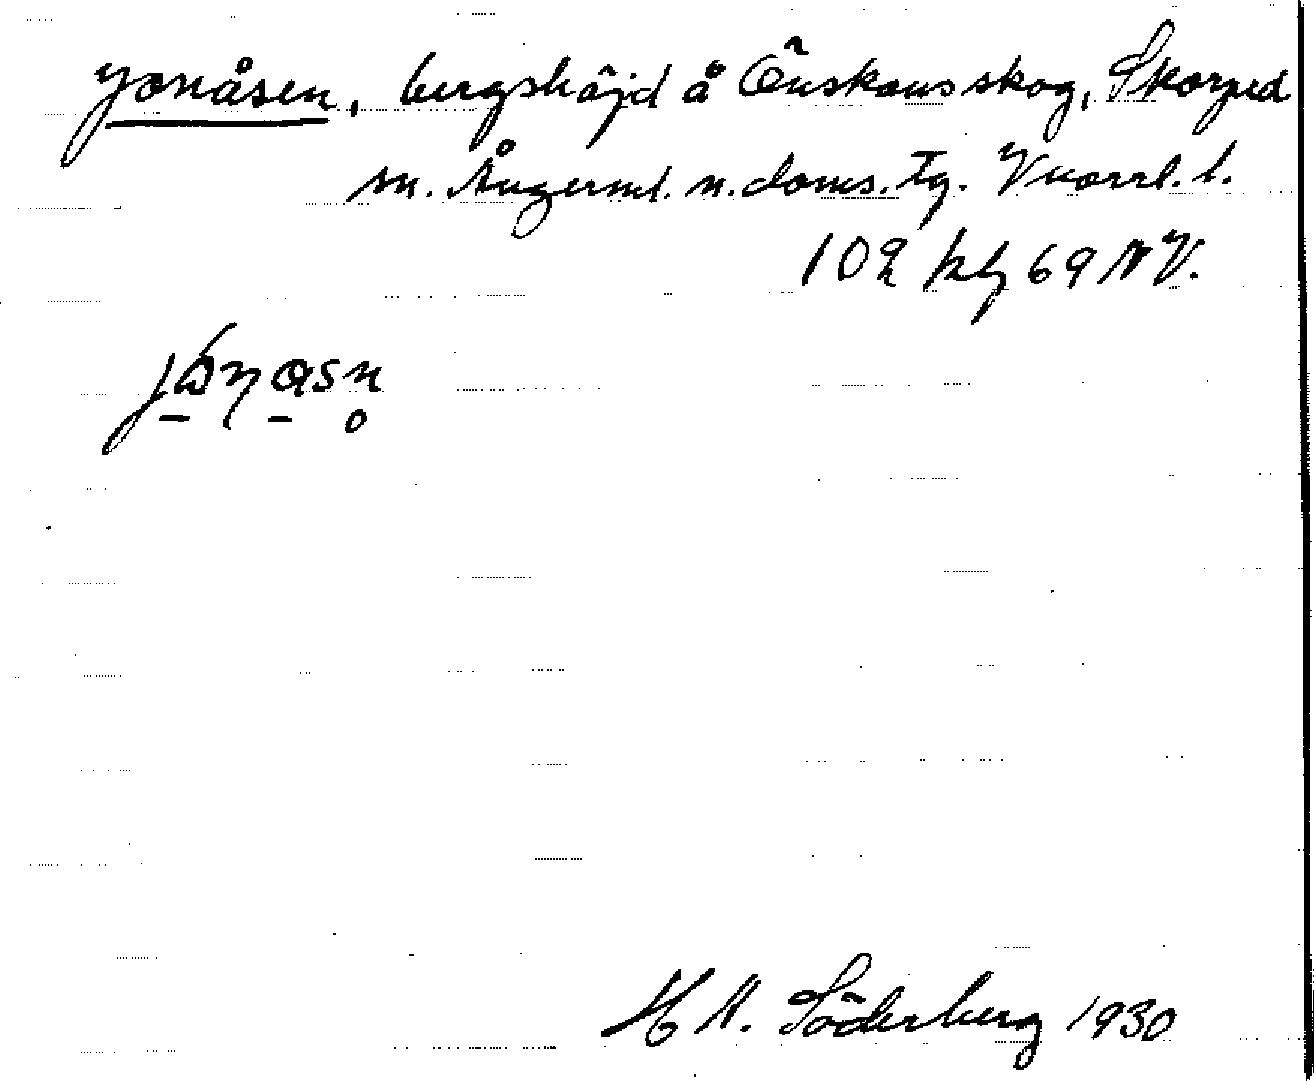 Jonåsen, bergshöjd å Önskans skog, Skorped
sn. Ångerml. n. doms. tg. Vnorrl. l.
102 kbl 69 NV.
H A. Söderberg 1930